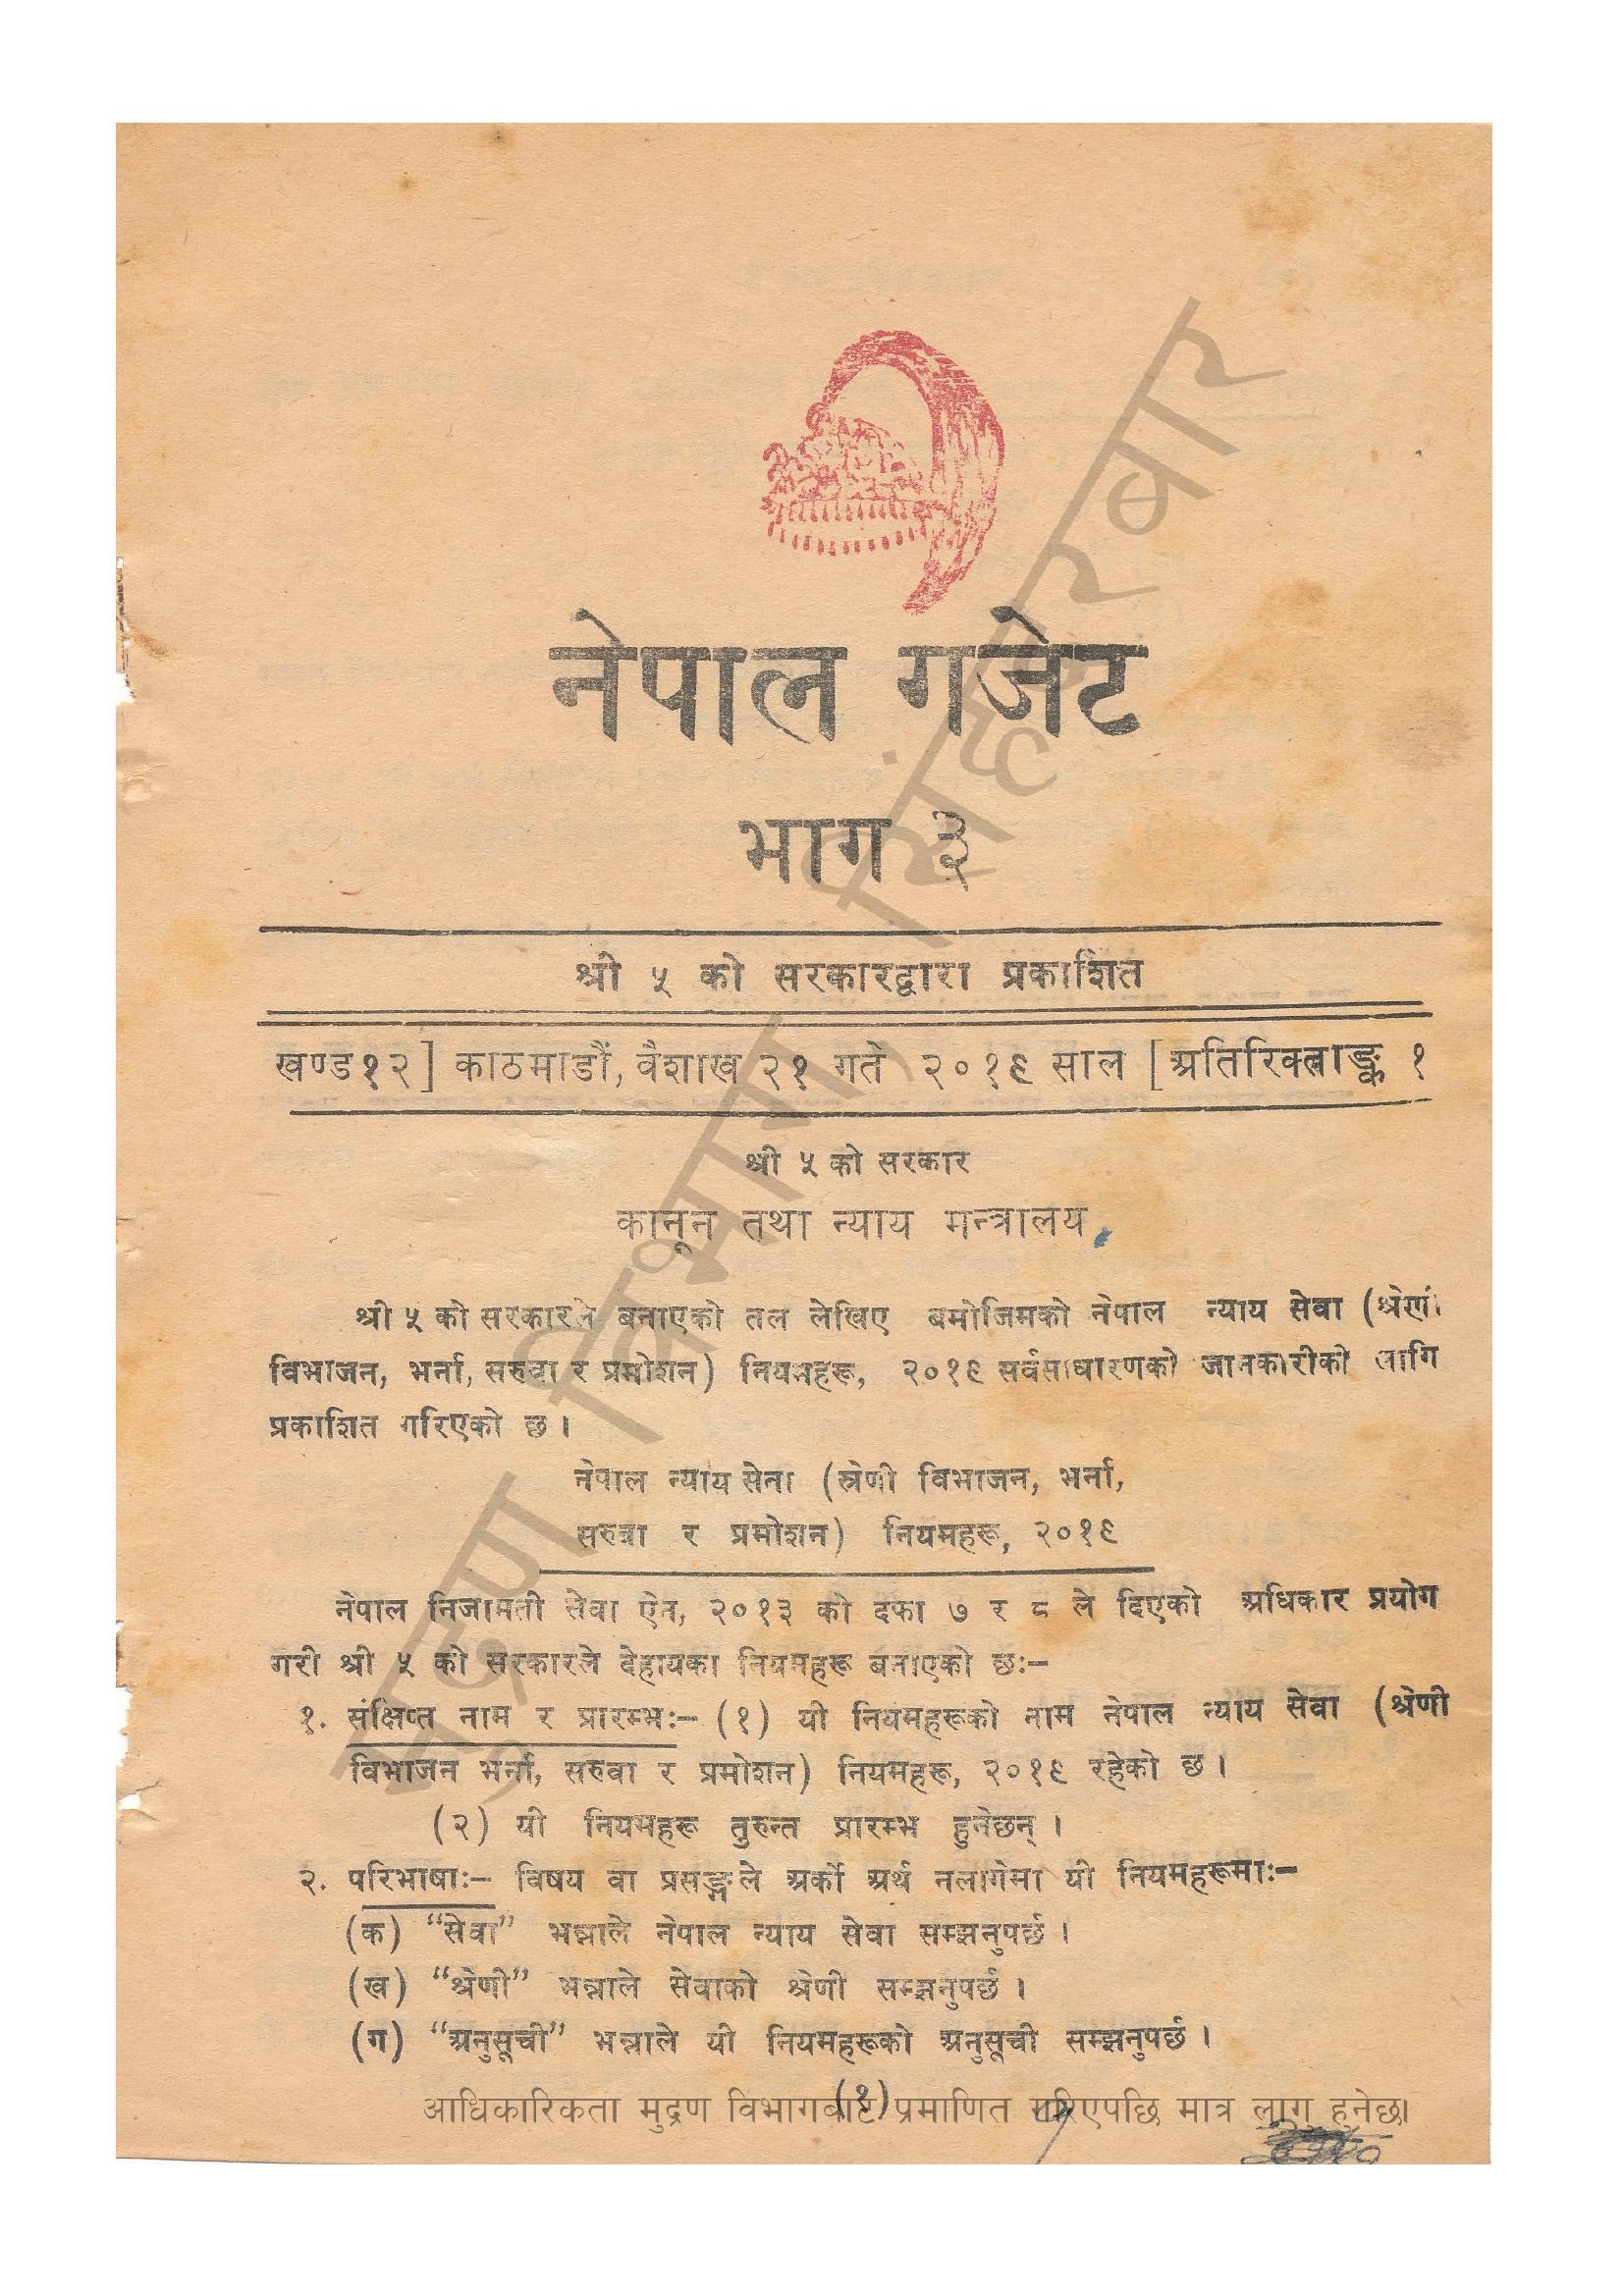 नेपाल गजेट
भाग ३
श्री ५ को सरकारद्वारा प्रकाशित
खण्ड १२] काठमाडौं, वैशाख २१ गते २०१९ साल [अतिरिक्ताङ्क १
श्री ५ को सरकार
कानून तथा न्याय मन्त्रालय
श्री ५ को सरकारले बनाएको तल लेखिए बमोजिमको नेपाल न्याय सेवा (श्रेणी
विभाजन, भर्ना, सरुवा र प्रमोशन) नियमहरू, २०१९ सर्वसाधारणको जानकारीको लागि
प्रकाशित गरिएको छ ।
नेपाल न्याय सेवा (श्रेणी विभाजन, भर्ना,
सरुवा र प्रमोशन) नियमहरू, २०१९
नेपाल निजामती सेवा ऐन, २०१३ को दफा ७ र ८ ले दिएको अधिकार प्रयोग
गरी श्री ५ को सरकारले देहायका नियमहरू बनाएको छ:-
१. संक्षिप्त नाम र प्रारम्भ:- (१) यी नियमहरूको नाम नेपाल न्याय सेवा (श्रेणी
विभाजन भर्ना, सरुवा र प्रमोशन) नियमहरू, २०१९ रहेको छ ।
(२) यी नियमहरू तुरुन्त प्रारम्भ हुनेछन् ।
२. परिभाषा:- विषय वा प्रसङ्गले अर्को अर्थ नलागेमा यी नियमहरूमा:-
(क) “सेवा” भन्नाले नेपाल न्याय सेवा सम्झनुपर्छ ।
(ख) “श्रेणी” भन्नाले सेवाको श्रेणी सम्झनुपर्छ ।
(ग) “अनुसूची” भन्नाले यी नियमहरूको अनुसूची सम्झनुपर्छ ।
(१)
आधिकारिकता मुद्रण विभागबाट प्रमाणित गरिएपछि मात्र लागु हुनेछ।
मुद्रण विभाग, सिंहदरवार